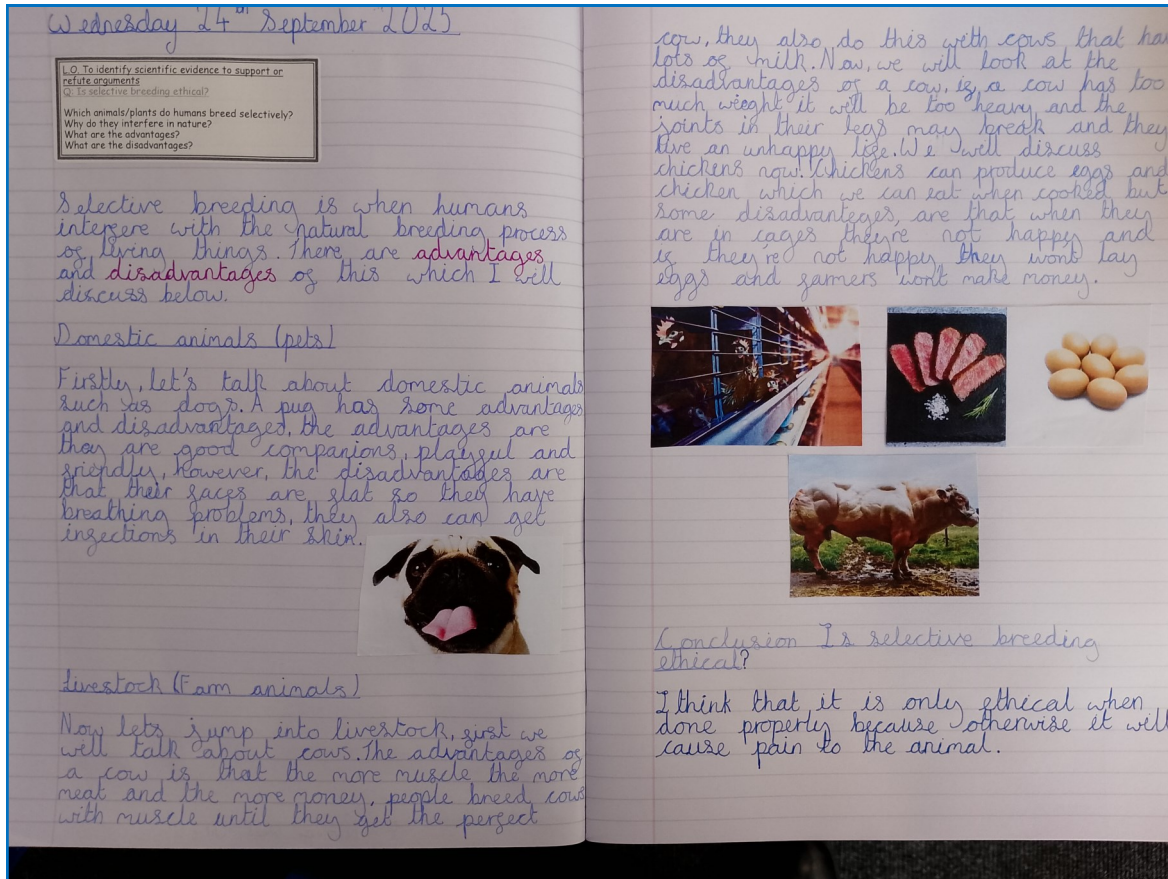 Wednesday 24th September 2025
L.O. To identify scientific evidence to support or
refute arguments
Q: Is selective breeding ethical?
Which animals/plants do humans breed selectively?
Why do they interfere in nature?
What are the advantages?
What are the disadvantages?
Selective breeding is when humans
interfere with the natural breeding process
of living things. There are advantages
and disadvantages of this which I will
discuss below.
Domestic animals (pets)
Firstly, let's talk about domestic animals
such as dogs. A pug has some advantages
and disadvantages, the advantages are
they are good companions, playful and
friendly, however, the disadvantages are
that their faces are flat so they have
breathing problems, they also can get
infections in their skin.
Livestock (Farm animals)
Now lets jump into livestock, first we
will talk about cows. The advantages of
a cow is that the more muscle the more
meat and the more money, people breed cows
with muscle until they get the perfect
cow, they also do this with cows that ha
lots of milk. Now, we will look at the
disadvantages of a cow, if a cow has too
much weight it will be too heavy and the
joints in their legs may break and they
live an unhappy life. We will discuss
chickens now. Chickens can produce eggs and
chicken which we can eat when cooked but
some disadvanteges, are that when they
are in cages they're not happy and
if they're not happy they wont lay
eggs and farmers wont make money.
Conclusion Is selective breeding
ethical?
I think that it is only ethical when
done properly because otherwise it will
cause pain to the animal.